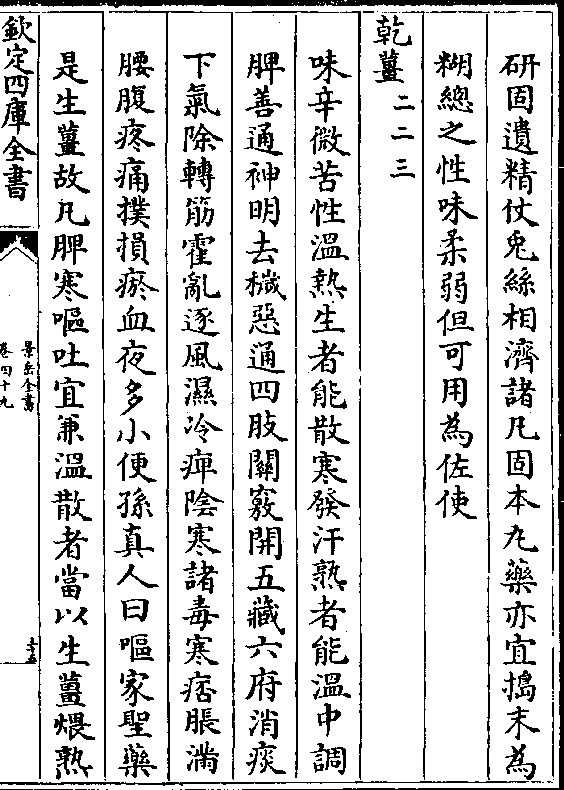 研固遺精仗兎絲相濟諸凡固本丸藥亦宜搗末為
糊總之性味柔弱但可用為佐使
乾薑二二三
味辛微苦性溫熱生者能散寒發汗熟者能溫中調
脾善通神明去穢惡通四肢關竅開五藏六府消痰
下氣除轉筋霍亂逐風濕冷痺陰寒諸毒寒痞脹滿
腰腹疼痛撲損瘀血夜多小便孫真人曰嘔家聖藥
是生薑故凡脾寒嘔吐宜兼溫散者當以生薑煨熟
欽定四庫全書
景岳全書
卷四十九